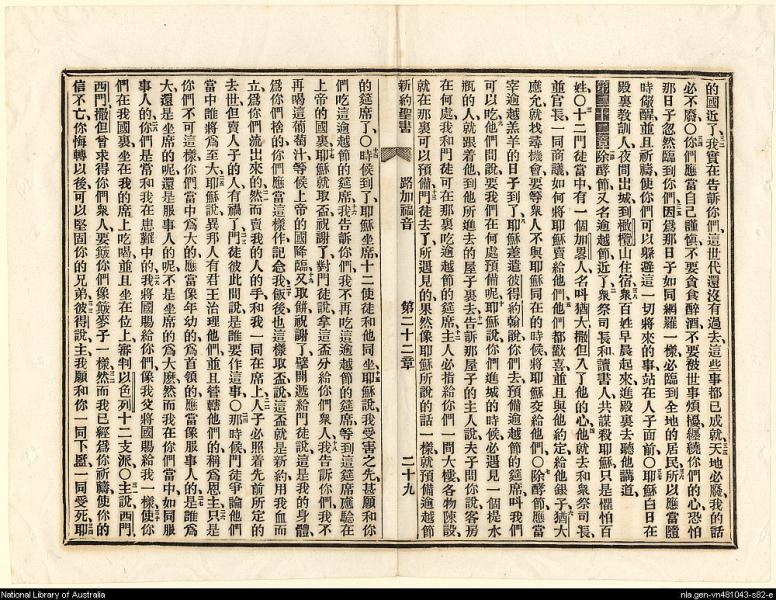 的國近了我實在告訴你們這世代還沒有過去這些事都已成就天地必廢我的話
必不廢○你們應當自己謹慎不要貪食醉酒不要被世事煩擾纏繞你們的心恐怕
那日子忽然臨到你們因爲那日子如同網羅一樣必臨到全地的居民所以應當隨
時儆醒並且祈禱使你們可以躲避這一切將來的事站在人子面前○耶穌白日在
殿裏教訓人夜間出城到橄欖山住宿衆百姓早晨起來進殿裏去聽他講道
第二十二章除酵節又名逾越節近了衆祭司長和讀書人共謀殺耶穌只是懼怕百
姓○十二門徒當中有一個加畧人名呌猶大撒但入了他的心他就去和衆祭司長
並官長一同商議如何將耶穌賣給他們他們都歡喜並且與他約定給他銀子猶大
應允就找尋機會要等衆人不與耶穌同在的時候將耶穌交給他們○除酵節應當
宰逾越羔羊的日子到了耶穌差遣彼得約翰說你們去預備逾越節的筵席呌我們
可以吃他們問說要我們在何處預備呢耶穌說你們進城的時候必遇見一個提水
瓶的人就跟着他到他所進去的屋子裏去告訴那屋子的主人說夫子問你說客房
在何處我和門徒可在那裏吃逾越節的筵席主人必指給你們一間大樓各物陳設
就在那裏可以預備門徒去了所遇見的果然像耶穌所說的話一樣就預備逾越節
新約聖書 路加福音 第二十二章 二十九
的筵席了○時候到了耶穌坐席十二使徒和他同坐耶穌說我受害之先甚願和你
們吃這逾越節的筵席我告訴你們我不再吃這逾越節的筵席等到這筵席應驗在
上帝的國裏耶穌就取盃祝謝了對門徒說拿這盃分給你們衆人我告訴你們我不
再喝這葡萄汁等候上帝的國降臨又取餅祝謝了擘開遞給門徒說這是我的身體
爲你們捨的你們應當這樣作記念我飯後也這樣取盃說這盃就是新約用我血而
立爲你們流出來的然而賣我的人的手和我一同在席上人子必照着先前所定的
去世但賣人子的人有禍了門徒彼此間說是誰要作這事○那時候門徒爭論他們
當中誰將爲至大耶穌說異邦人有君王治理他們並且管轄他們的稱爲恩主只是
你們不可這樣你們當中爲大的應當像年幼的爲首領的應當像服事人的是誰爲
大還是坐席的呢還是服事人的呢不是坐席的爲大麼然而我在你們當中如同服
事人的你們是常和我在患難中的我將國賜給你們像我父將國賜給我一樣使你
們在我國裏坐在我的席上吃喝並且坐在位上審判以色列十二支派○主說西門
西門撒但曾求得你們衆人要簸你們像簸麥子一樣然而我已經爲你祈禱使你的
信不亡你悔轉以後可以堅固你的兄弟彼得說主我願和你一同下監一同受死耶
National Library of Australia
nla.gen-vn481043-s82-e